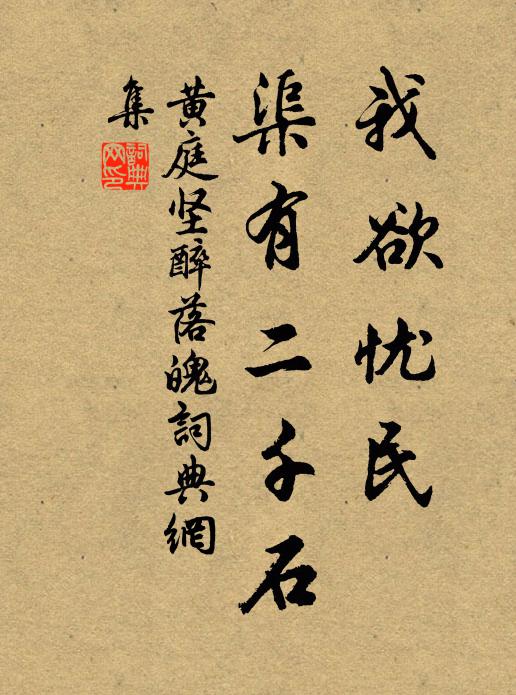 我欲忧民
渠有二千石
黄庭坚醉落魄詞典網
集
詞典网印